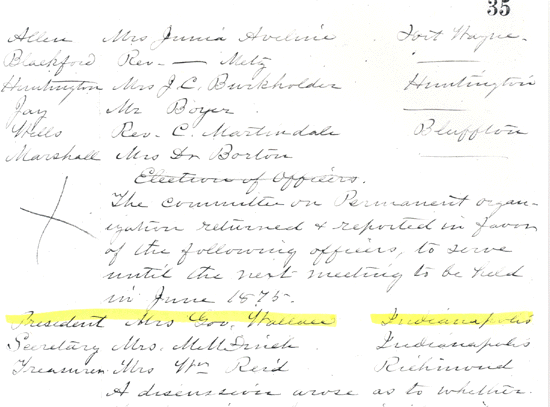 35
Allen Mrs Junia Aveline Fort Wayne.
Blackford Rev. — Metz
Huntington Mrs J. C. Burkholder Huntington
Jay Mr Boyer
Wells Rev. C. Martindale Bluffton
Marshall Mrs Dr Borton
Election of Officers.
The committee on Permanent organ-
ization returned & reported in favor
of the following officers, to serve
until the next meeting to be held
in June 1875.
President Mrs Gov. Wallace Indianapolis
Secretary Mrs. Indianapolis
Treasurer Mrs Wm Reid Richmond
A discussion arose as to whether